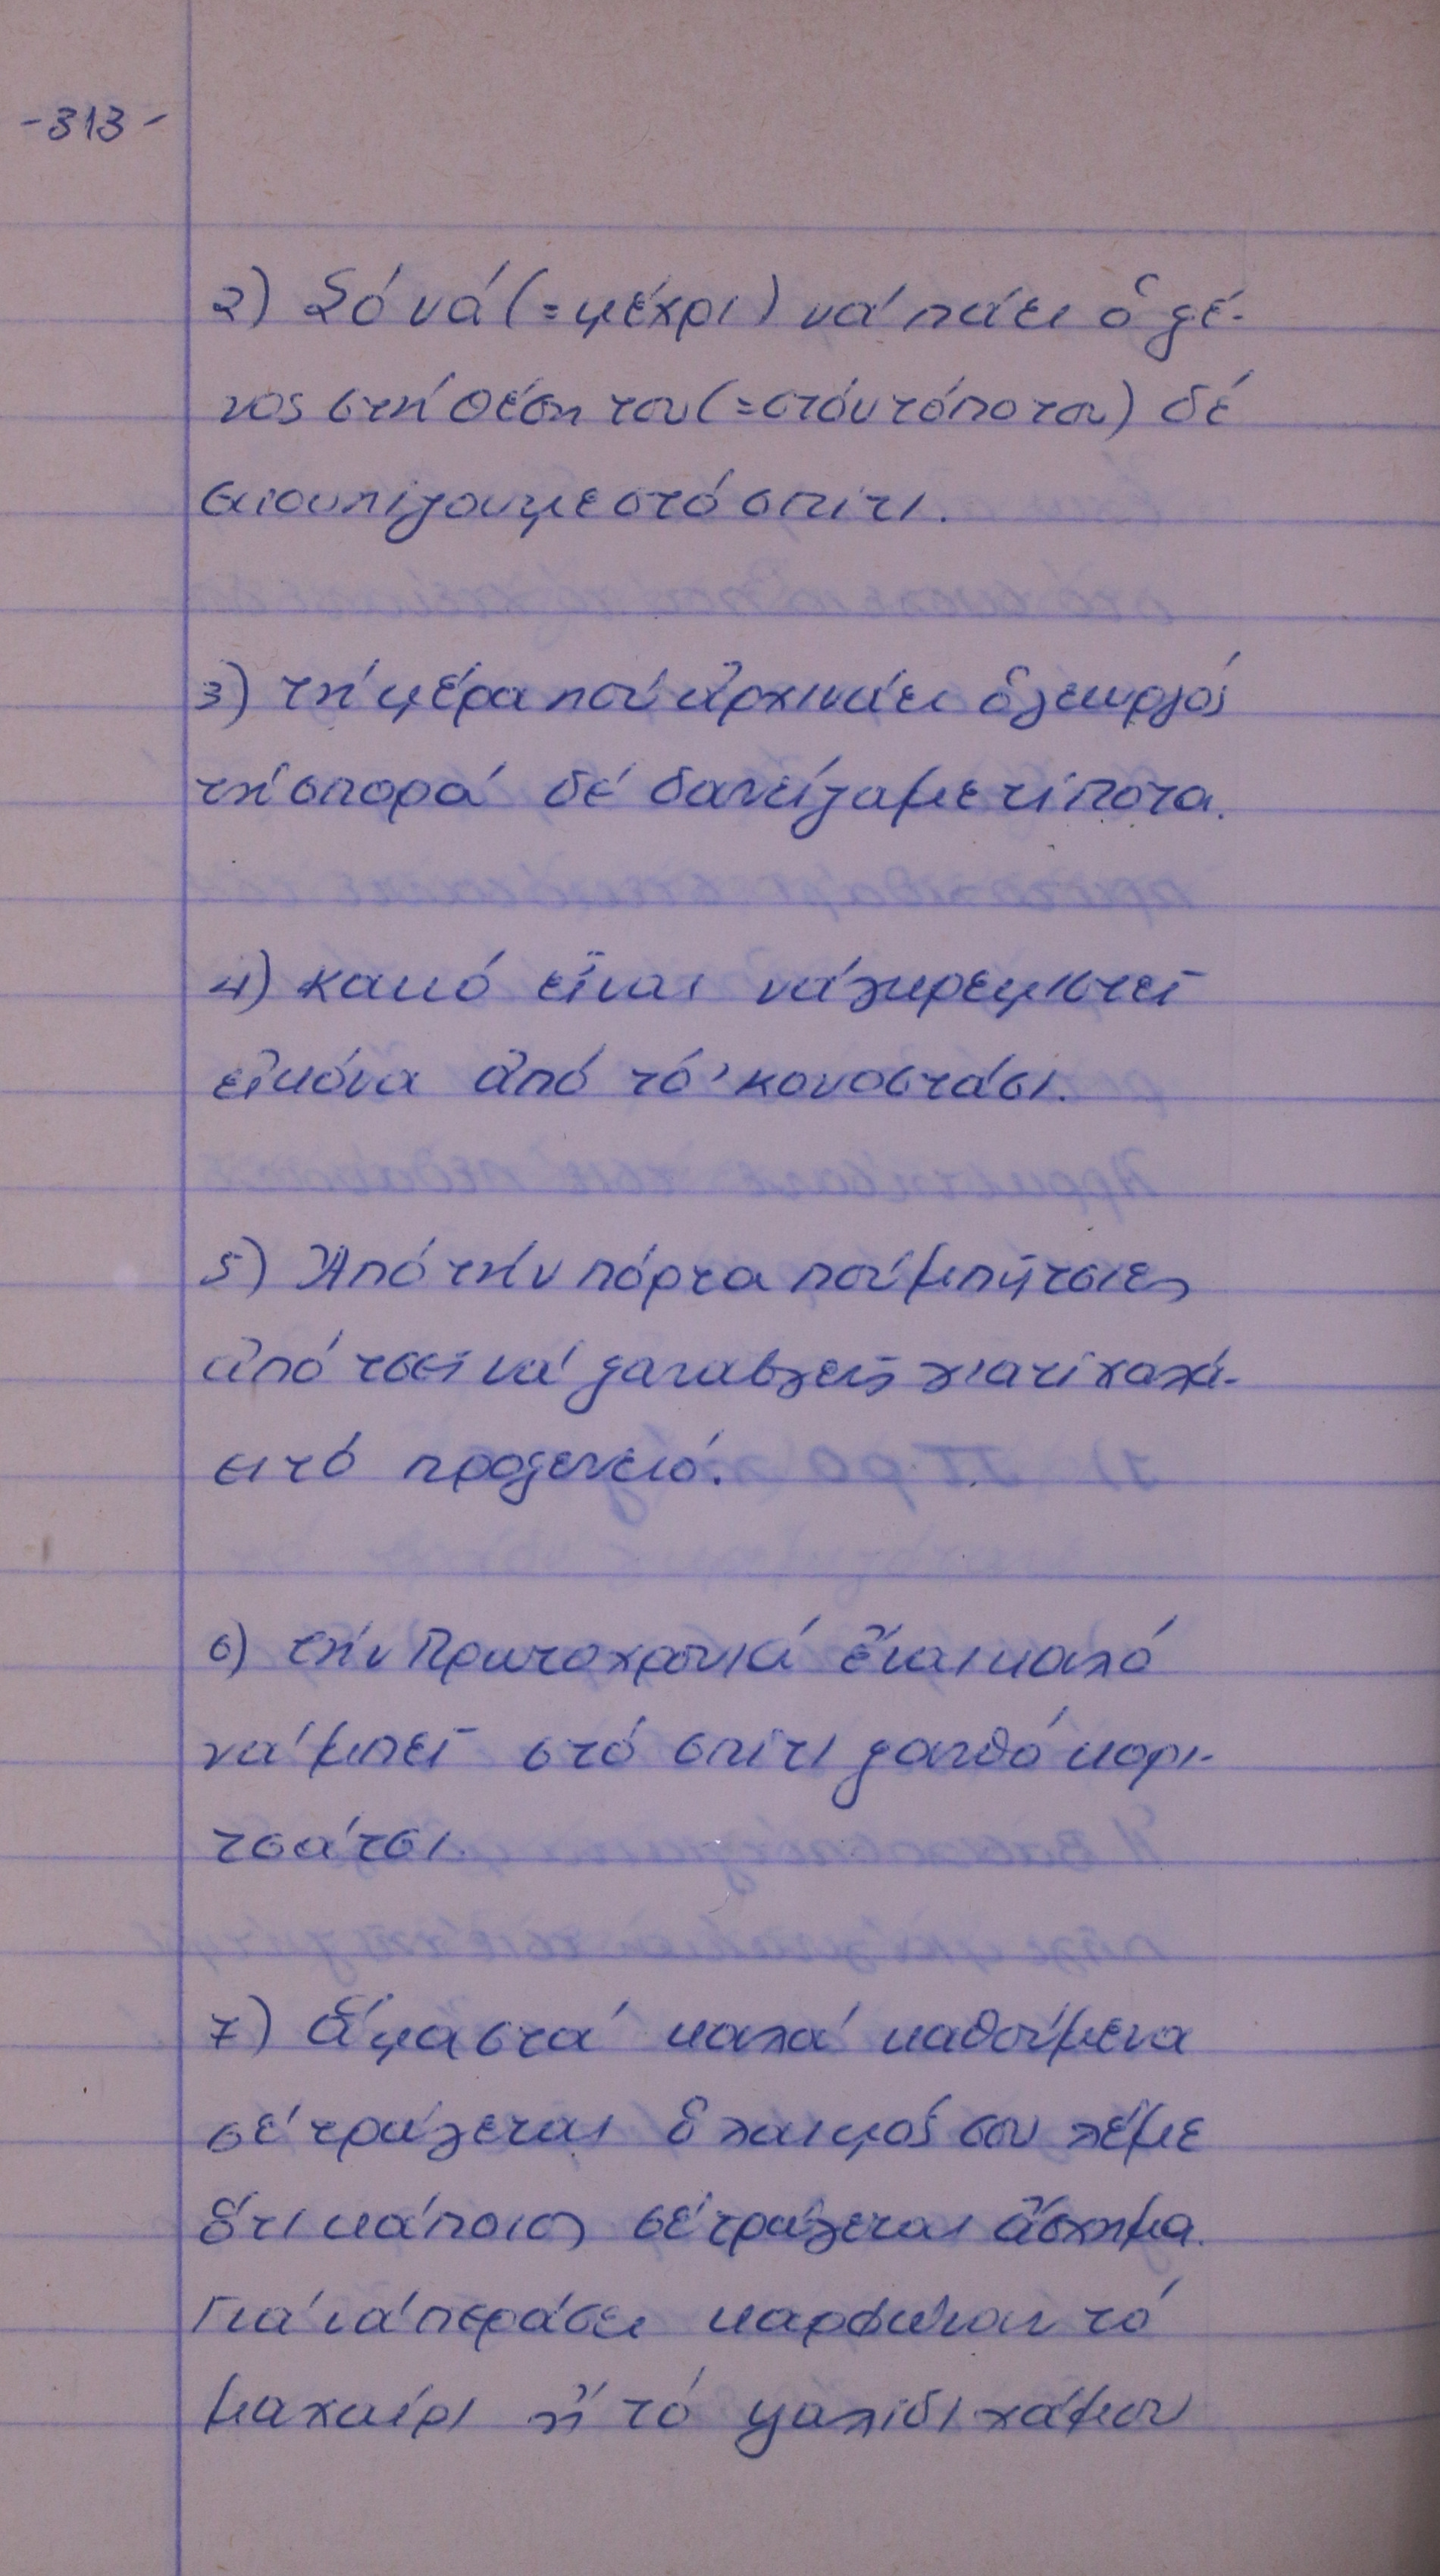 -313-
2) Σό νά (=μέχρι) νά πάει ὁ ξέ-
νος στή θέση του (=στόν τόπο του) δέ
σκουπίζουμε στό σπίτι.
3) τή μέρα πού ἀρχινάει ὁ γεωργός
τή σπορά δέ δανείζαμε τίποτα.
4) κακό εἶναι νά γκρεμιστεῖ
εἰκόνα ἀπό τό 'κονοστάσι.
5) Ἀπό τήν πόρτα πού μπῆτσιες
ἀπό τσεῖ νά ξαναβγεῖς γιατί χαλά-
ει τό προξενειό.
6) τήν Πρωτοχρονιά εἶναι καλό
νά μπεῖ στό σπίτι ξανθό κορι-
τσάτσι.
7) ἅμα στά καλά καθούμενα
σέ τρώγεται ὁ λαιμός σου λέμε
ὅτι κάποιος σέ τρώγεται ἄσχημα.
Γιά νά περάσει καρφώναν τό
μαχαίρι ἤ τό ψαλίδι χάμου